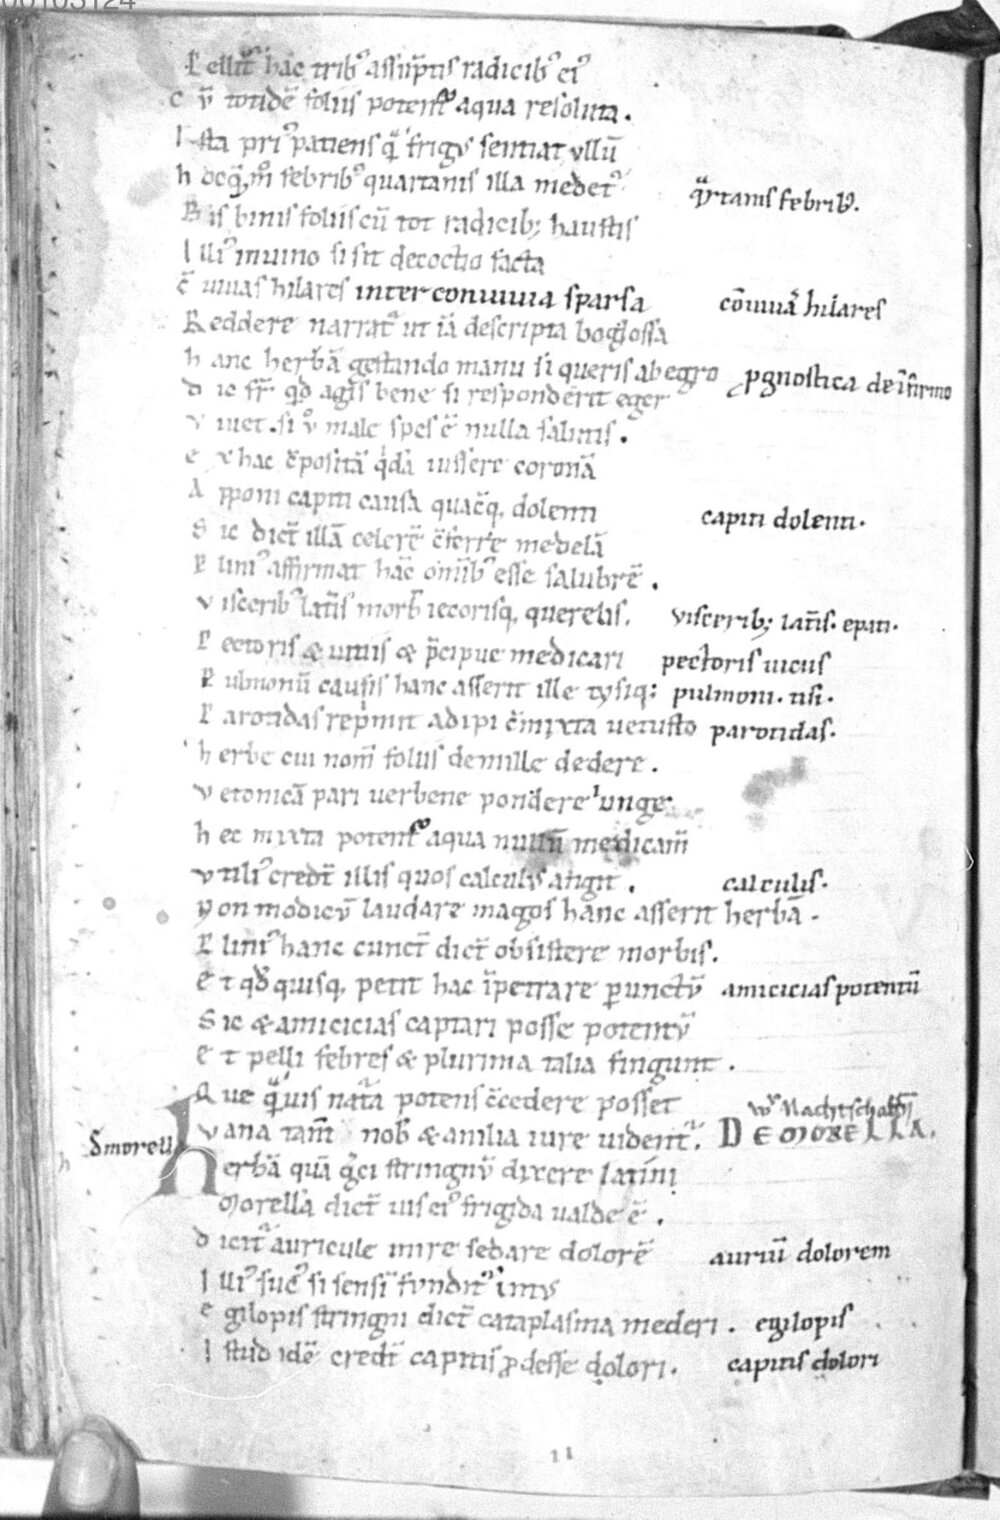 00103124
P ellit̄ hāc tribꝰ assūptis radicibꝰ eiꝰ
C v̄ totidē foliis potent' aqua resoluta.
I sta priꝰ patiens q̄ frigꝰ sentiat vllū
h ocq̢ m̊ febribꝰ quartanis illa medet᷑ q̄rtanis febribꝰ.
B is binis foliis cū tot radicib; haustis
I lliꝰ in uino si sit decoctio facta
C̄ uiuas hilares inter conuiuia sparsa cōuiuā hilares
R eddere narrat᷑ ut iā descripta boglossa
h anc herbā gestando manu si queris ab egro p̲gnostica de ifirmo
D ic fr̄ qd̄ agis bene si responderit eger
V iuet. si v̊ male spes ē nulla salutis.
E x hac c̄positā q̄dā iussere coronā
A pponi capiti causa quac̄q̢ dolenti capiti dolenti.
S ic dict̄ illā celerē c̄ferre medelā
P liniꝰ affirmat hāc om̄ibꝰ esse salubrē.
V isceribꝰ lat̄is morb̄ iecorisq̢ querelis. viscerib; lat̄is. epati.
P ectoris & uitiis & p̄cipue medicari pectoris uicus
P ulmonū causis hanc asserit ille tysiq; pulmoni. tisi.
P arotidas rep̄mit adipi c̄mixta uetusto parotidas.
h erbe cui nom̄ foliis de mille dedere.
V etonicā pari uerbene pondere iunge
h ec mixta potent' aqua nullū medicam̄
V tiliꝰ credit̄ illis quos calculꝰ angit. calculis.
N on modicv̄ laudare magos hanc asserit herbā.
P liniꝰ hanc cunct̄ dict̄ obsistere morbis.
E t qd̄ quisq̢ petit hac īpetrare p̲unctv̄ amicicias potentū
S ic & amicicias captari posse potentv̄
E t pelli febres & plurima talia fingunt.
Q ue q̄uis nat᷑a potens c̄cedere posset
V ana tam̄ nob̄ & anilia iure uident᷑. wꝰ Nachtschattī DE MORELLA.
D̄ morell̄ H erbā quā gͥci strignv̄ dixere latini
Morella dict̄ uis eiꝰ frigida ualde ē.
D icit᷑ auricule mire sedare dolorē auriū dolorem
I lliꝰ sucꝰ si sensī fvndit᷑ intꝰ
E gilopis strigni dict̄ cataplasma mederi. egilopis
I stud idē credit̄ capitis p̲desse dolori. capitis dolori
11